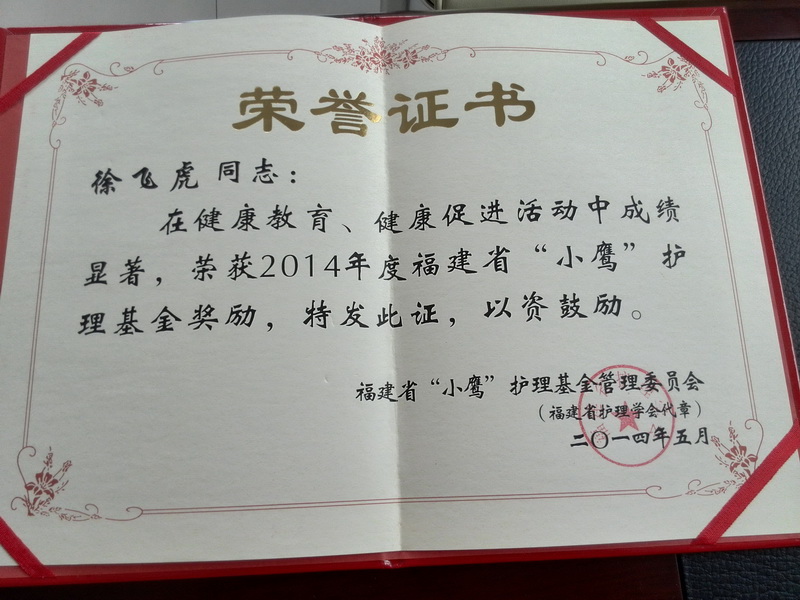 荣誉证书
徐飞虎 同志：
在健康教育、健康促进活动中成绩
显著，荣获2014年度福建省“小鹰”护
理基金奖励，特发此证，以资鼓励。
福建省“小鹰”护理基金管理委员会
（福建省护理学会代章）
二〇一四年五月